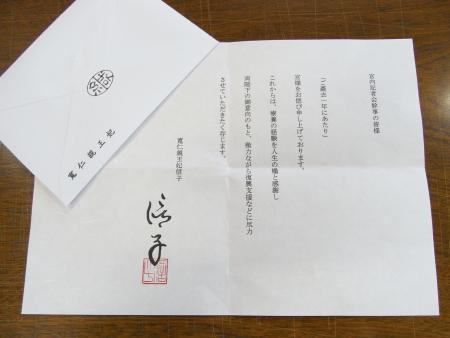 宮内記者会幹事の皆様
(ご薨去一年にあたり)
宮様をお偲び申し上げております。
これからは、療養の経験を人生の橋と感謝し
両陛下の御意向のもと、微力ながら復興支援などに尽力
させていただきたく存じます。
寬仁親王妃信子
信子
寬仁親王妃